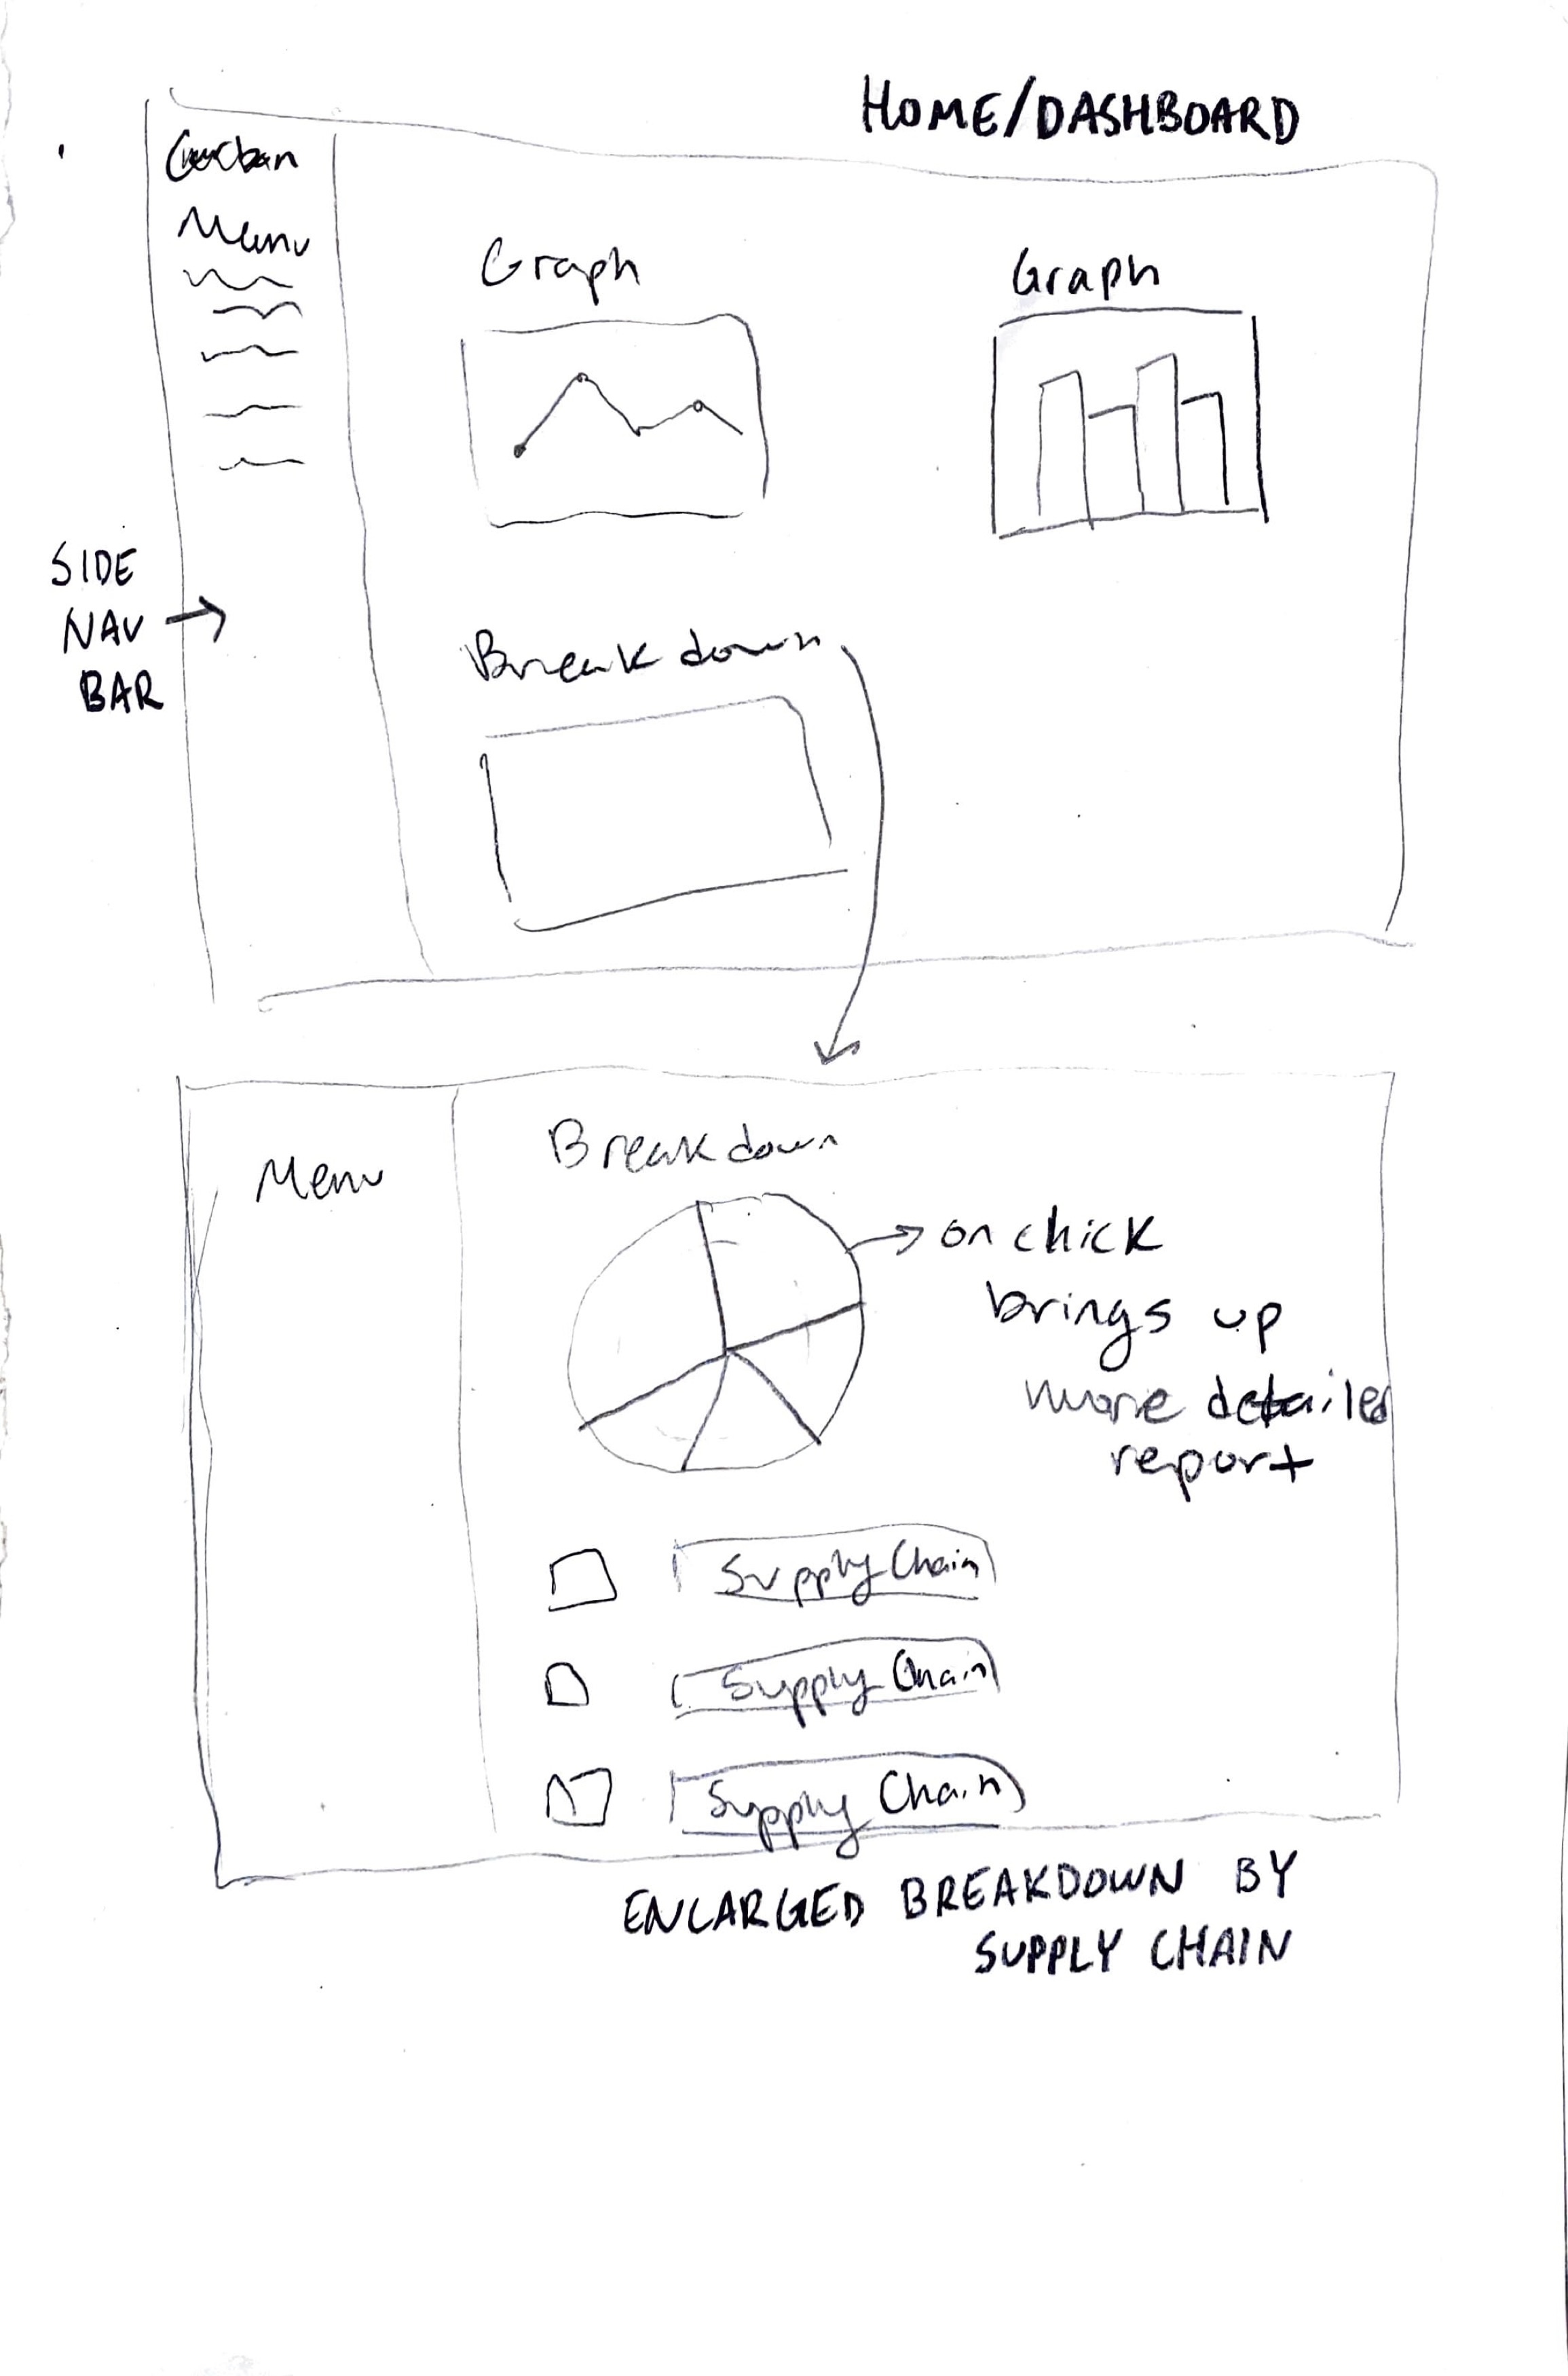 HOME/DASHBOARD
Menu
Graph
Graph
SIDE
NAV
BAR
Breakdown
Menu
Breakdown
on chick
brings up
more detailed
report
Supply Chain
Supply Chain
Supply Chain
ENLARGED BREAKDOWN BY
SUPPLY CHAIN